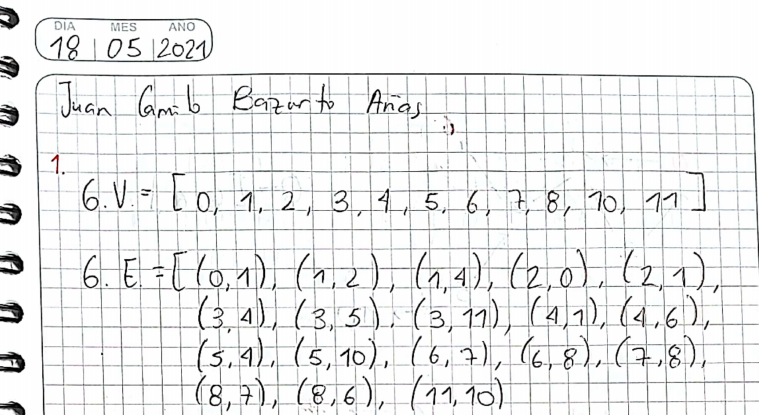 DIA MES AÑO
18 05 2021
Juan Camilo Bazurto Arias
:)
1.
G.V. = [0, 1, 2, 3, 4, 5, 6, 7, 8, 10, 11]
G.E. = [(0,1), (1,2), (1,4), (2,0), (2,1),
(3,4), (3,5), (3,11), (4,1), (4,6),
(5,4), (5,10), (6,7), (6,8), (7,8),
(8,7), (8,6), (11,10)